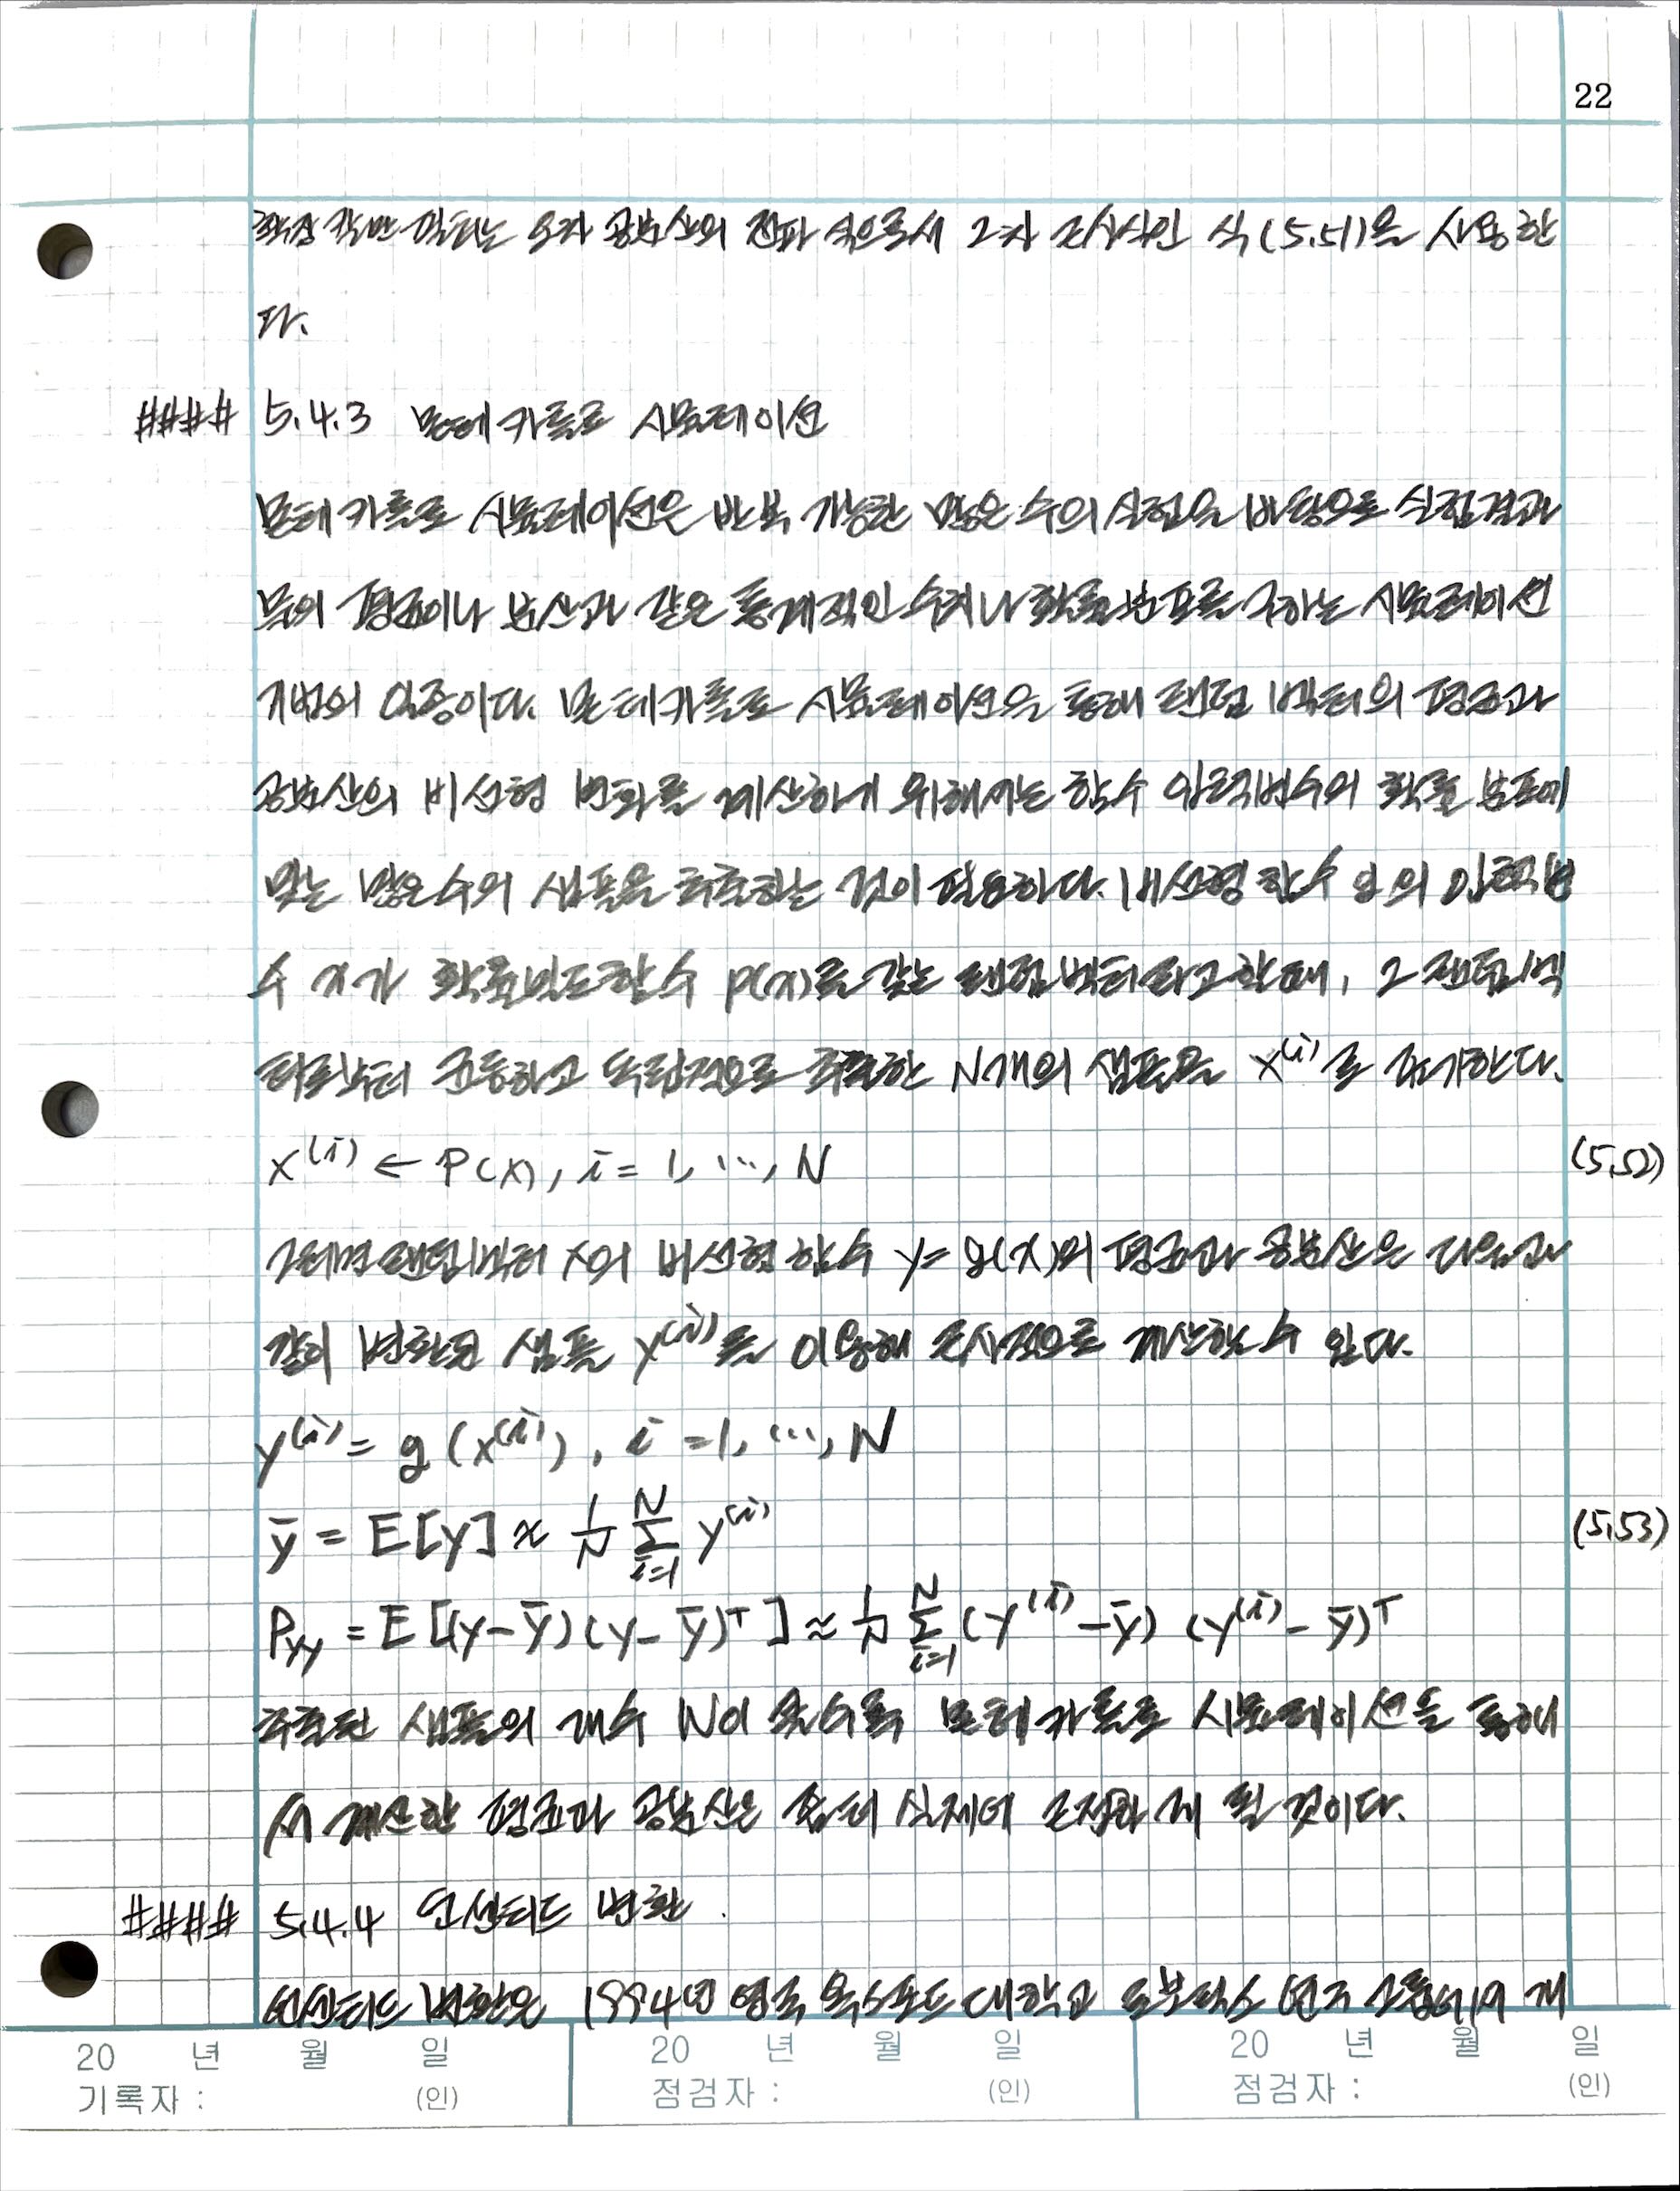 22
확장 칼만 필터는 오차 공분산의 전파 식으로서 2차 근사식인 식(5.51)을 사용한
다.
#### 5.4.3 몬테카를로 시뮬레이션
몬테카를로 시뮬레이션은 반복 가능한 많은 수의 실험을 바탕으로 실험결과
들의 평균이나 분산과 같은 통계적인 수치나 확률분포를 구하는 시뮬레이션
기법의 일종이다. 몬테카를로 시뮬레이션을 통해 랜덤 벡터의 평균과
공분산의 비선형 변화를 계산하기 위해서는 함수 입력변수의 확률 분포에
맞는 많은 수의 샘플을 추출하는 것이 필요하다. 비선형 함수 g의 입력변
수 x가 확률밀도함수 p(x)를 갖는 랜덤벡터라고 할때, 그 랜덤벡
터로부터 균등하고 독립적으로 추출한 N개의 샘플을 x^(i)로 표기한다.
x^(i) ← P(x), i = 1, ..., N (5.52)
그러면 랜덤벡터 x의 비선형함수 y = g(x)의 평균과 공분산은 다음과
같이 변환된 샘플 y^(i)를 이용해 근사적으로 계산할 수 있다.
y^(i) = g(x^(i)), i = 1, ..., N
ȳ = E[y] ≈ 1/N Σ_{i=1}^{N} y^(i) (5.53)
P_yy = E[(y-ȳ)(y-ȳ)^T] ≈ 1/N Σ_{i=1}^{N} (y^(i) - ȳ)(y^(i) - ȳ)^T
추출된 샘플의 개수 N이 클수록 몬테카를로 시뮬레이션을 통해
서 계산한 평균과 공분산은 좀더 실제에 근접하게 될 것이다.
#### 5.4.4 언센티드 변환.
언센티드 변환은 1994년 영국 옥스포드 대학교 로보틱스 연구 그룹에서 개
20 년 월 일 20 년 월 일 20 년 월 일
기록자 : (인) 점검자 : (인) 점검자 : (인)